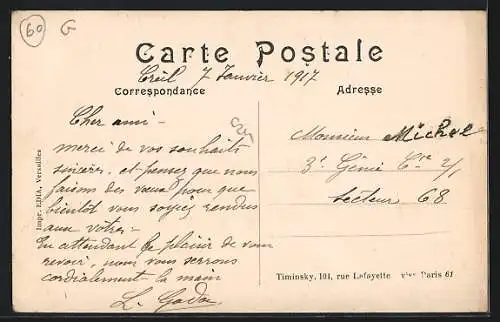 60 G
Carte Postale
Creil 7 Janvier 1917
Correspondance
Adresse
Cher ami -
merci de vos souhaits
sincères, et pensez que nous
faisons des vœux pour que
bientôt vous soyiez rendus
aux votres -
En attendant le plaisir de vous
revoir, nous vous serrons
cordialement la main
L.
Monsieur Michel
3e Génie Cie 2/1
Secteur 68
Impr. EDIA, Versailles
Timinsky, 101, rue Lafayette Paris 61